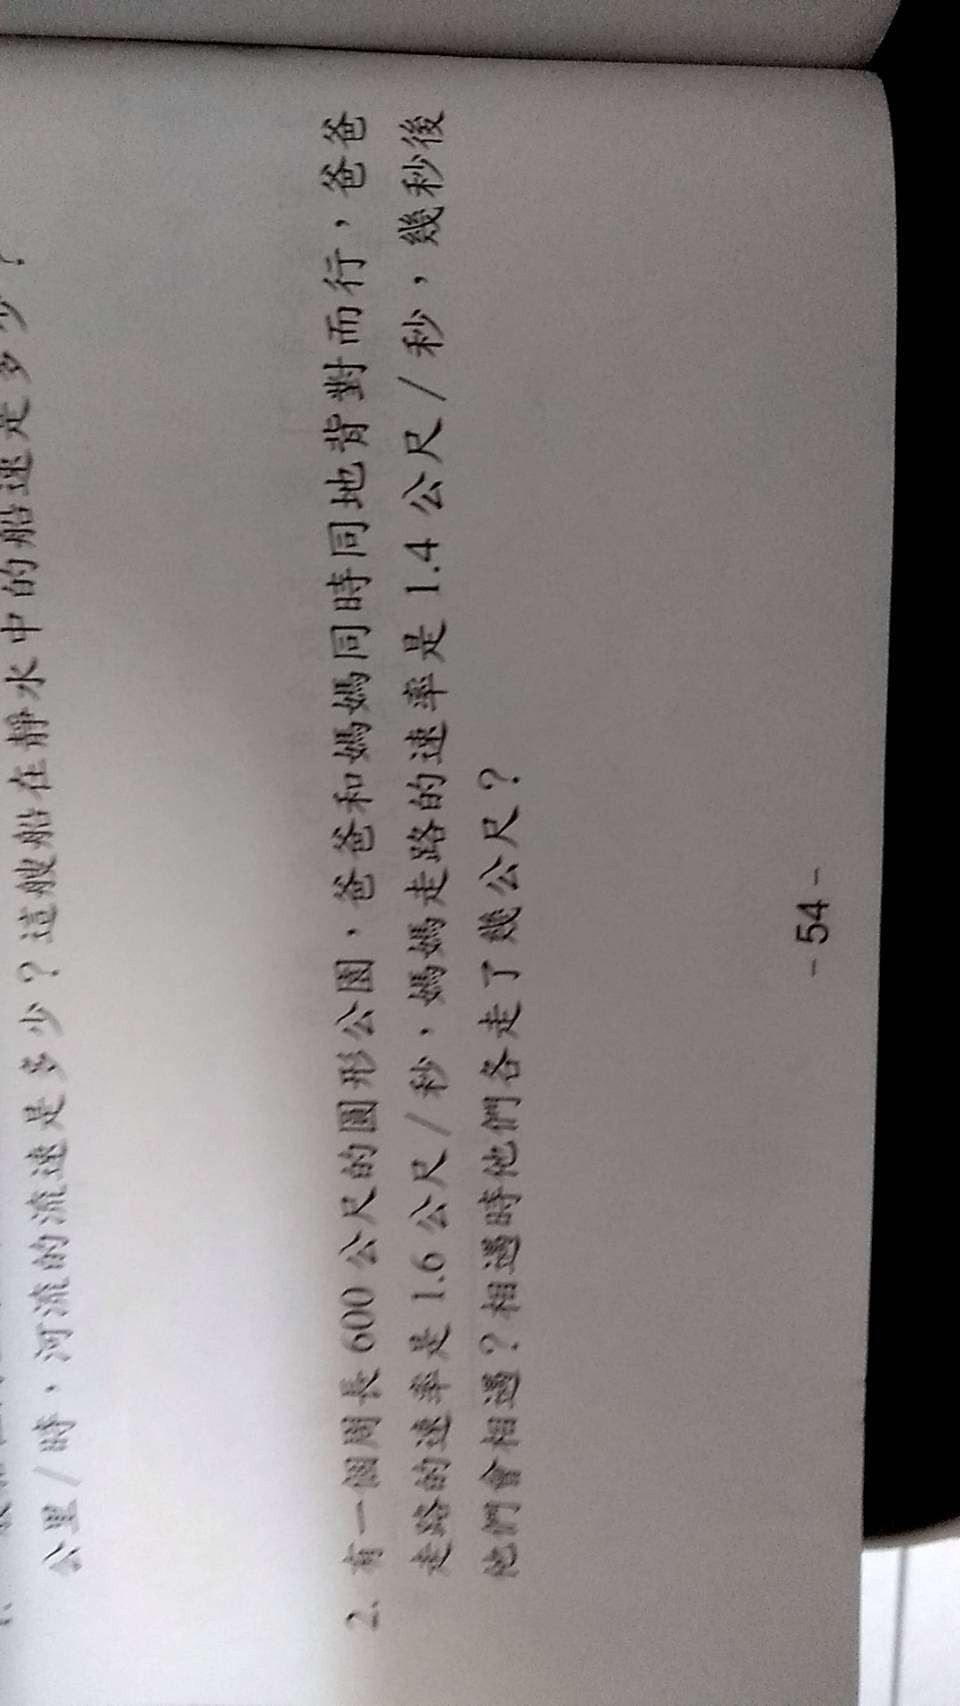 公里/時,河流的流速是多少?這艘船在靜水中的船速是多少?
2. 有一個周長600公尺的圓形公園,爸爸和媽媽同時同地背對而行,爸爸
走路的速率是1.6公尺/秒,媽媽走路的速率是1.4公尺/秒,幾秒後
他們會相遇?相遇時他們各走了幾公尺?
-54-